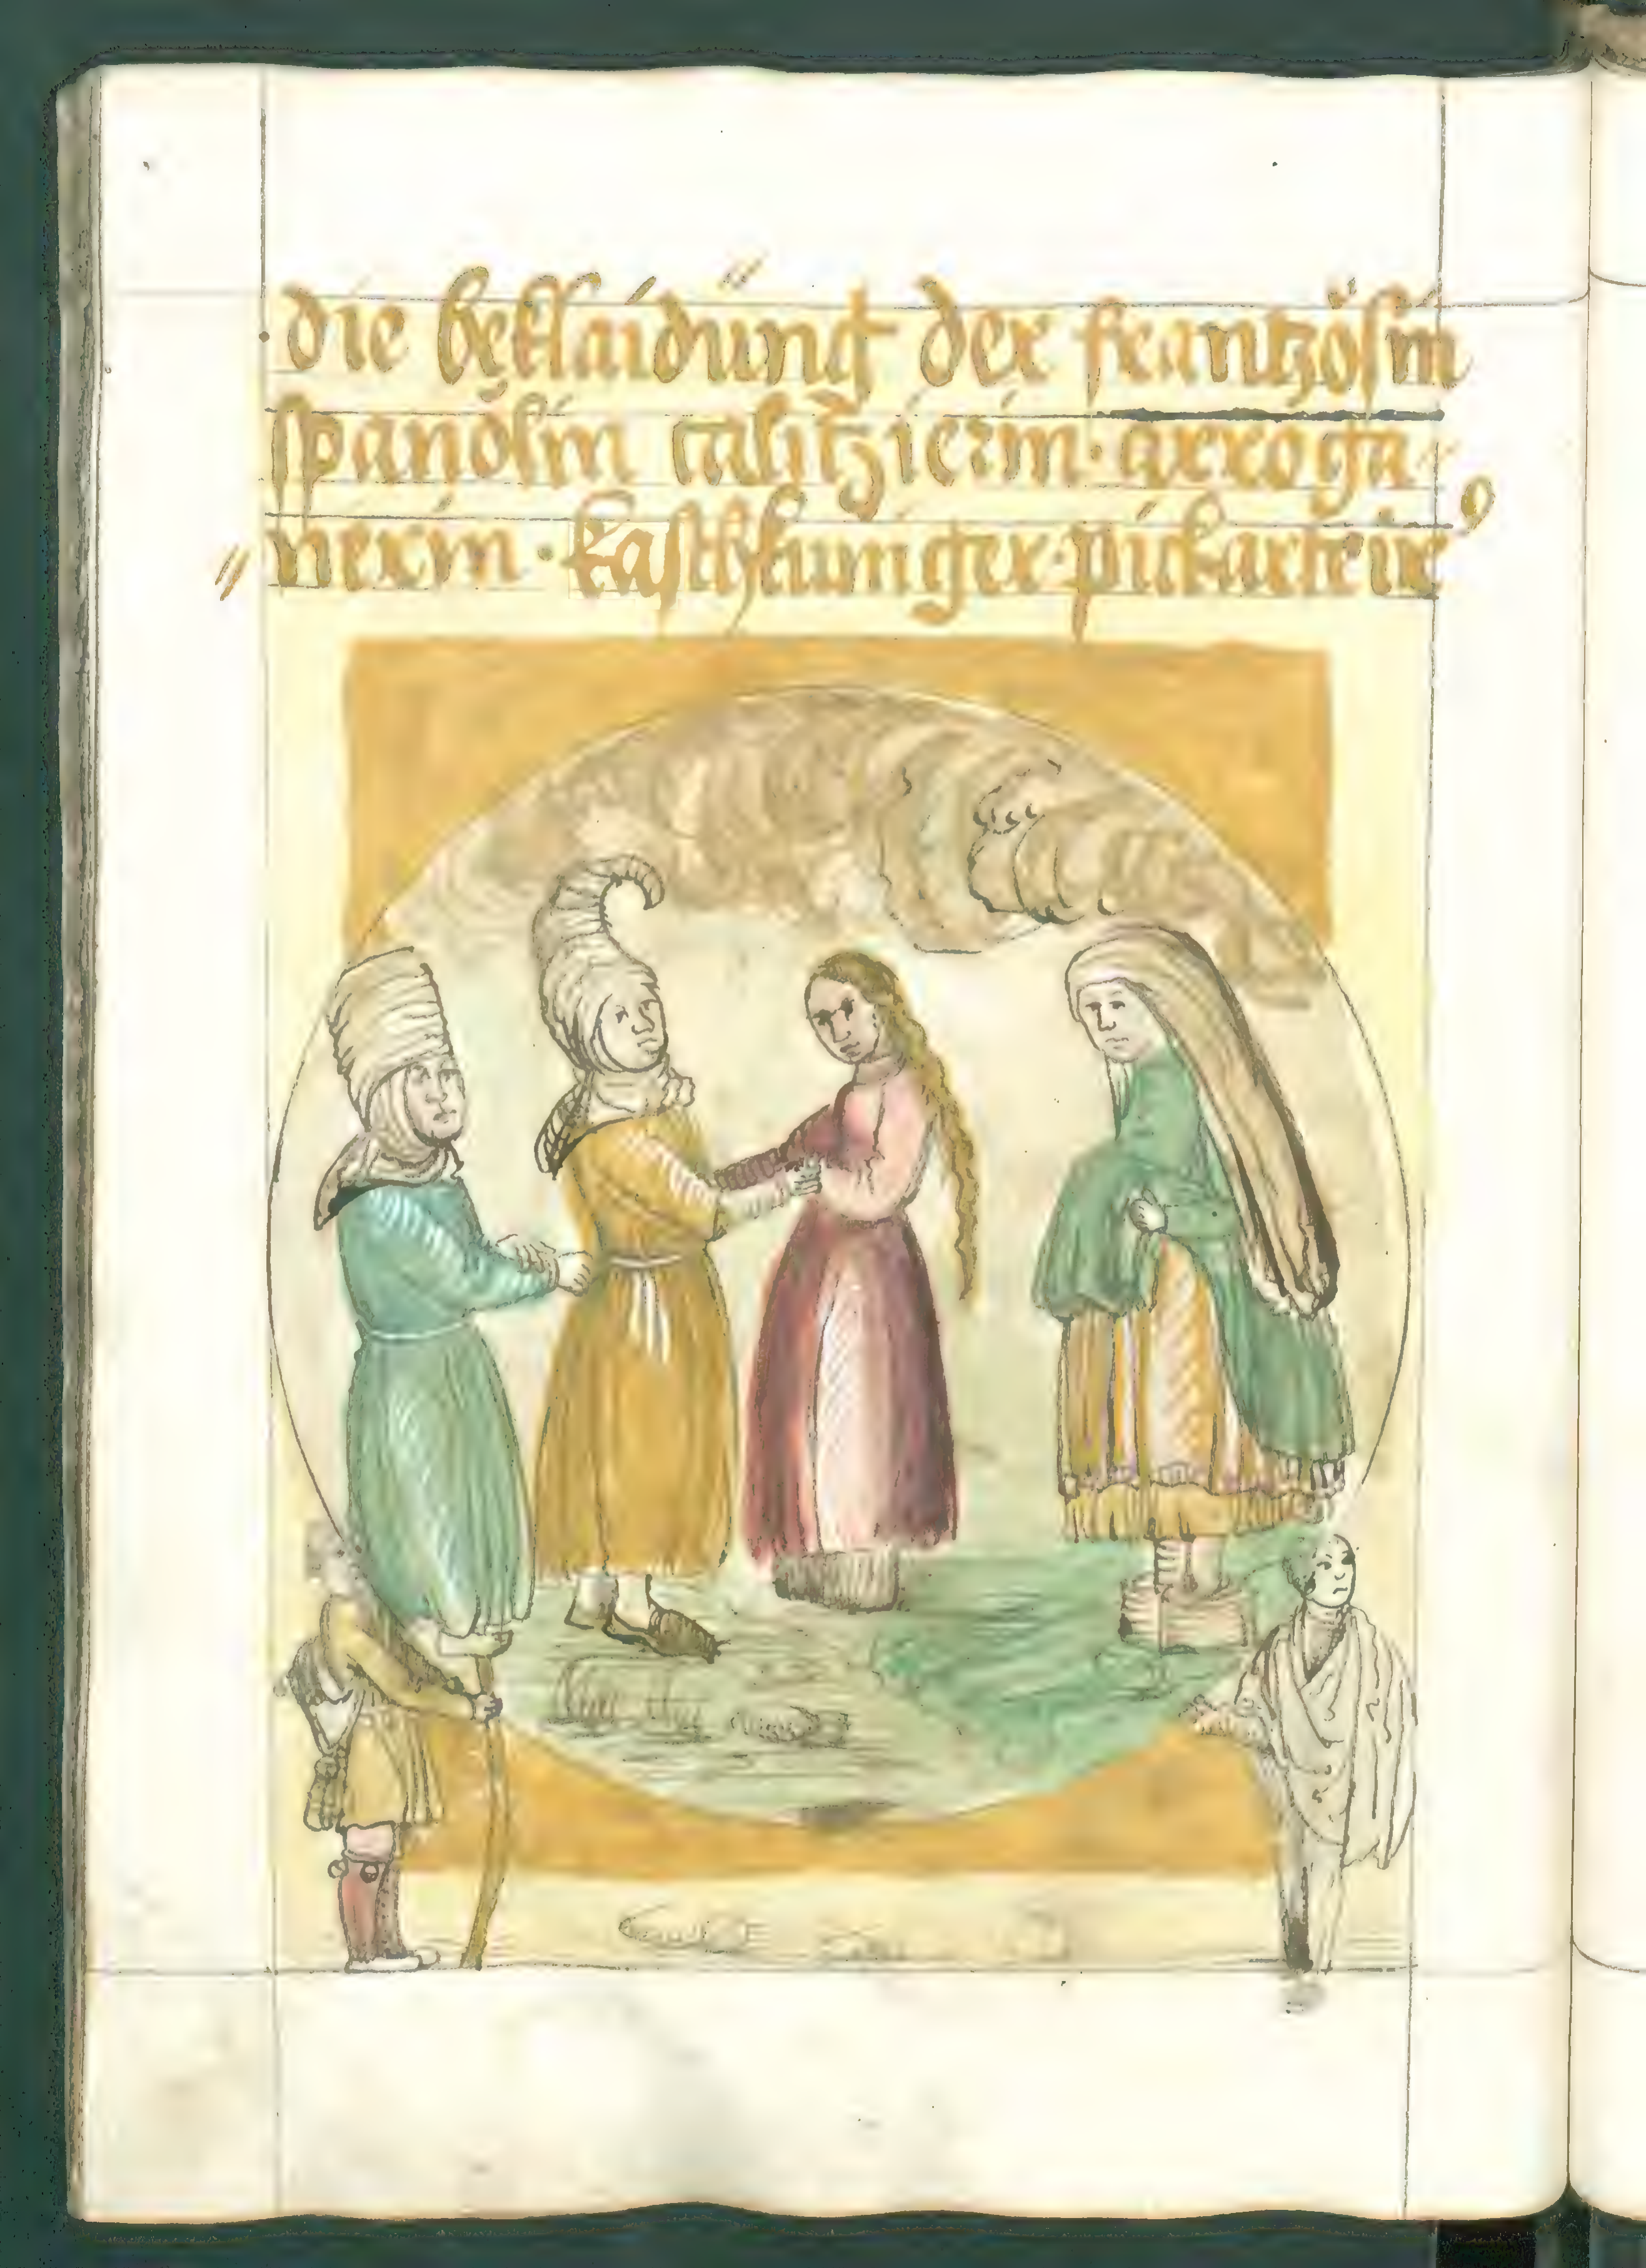 die beklaidung der frantzösin
spanölin calitzierin · arroga
nerin · kasthkuniger · pickarte